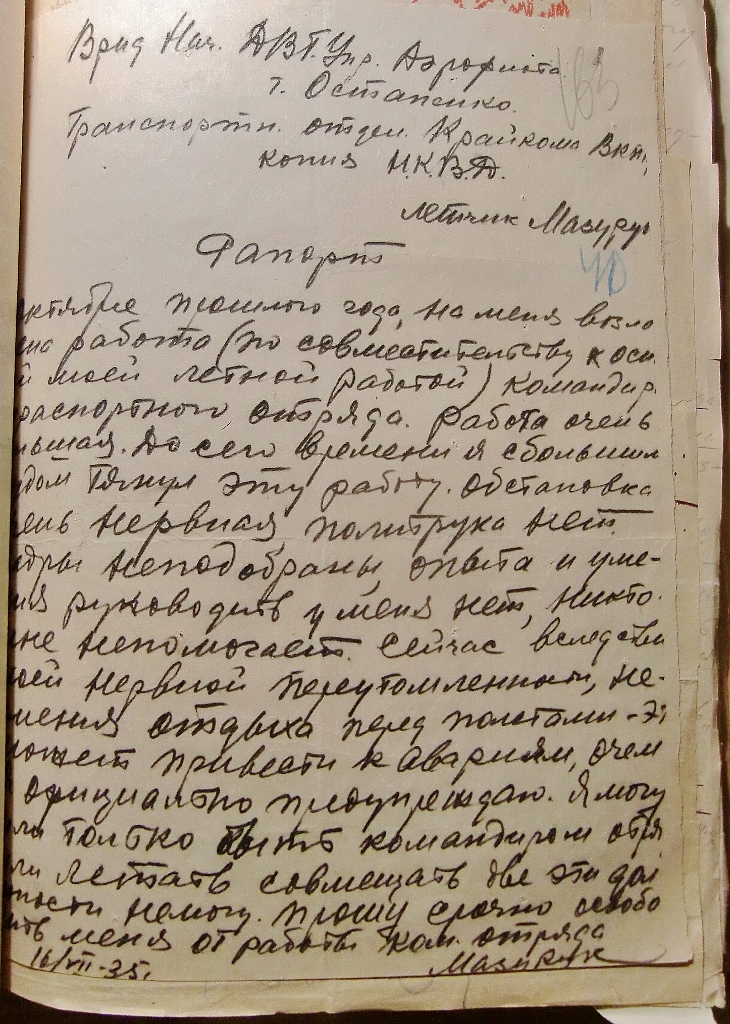 Врид Нач. ДВТ. Упр. Аэрофлота
т. Остапенко.
163
Транспортн. отдел. Крайкома Вкп,
копия Н.К.В.Д.
летчик Мазурук
40
Рапорт
ктябре прошлого года, на меня возло
ена работа (по совместительству к осн
й моей летной работой) командир.
распортного отряда. Работа очень
льшая. До сего времени я с большим
удом тянул эту работу. Обстановка
ень нервная, политрука нет.
адры неподобраны, опыта и уме-
ия руководить у меня нет, никто.
не непомогает. Сейчас вследстви
оей нервной переутомленности, не-
мения отдыха перед полетами - эт
может привести к авариям, очем
официально предупреждаю. Я могу
ли только быть командиром отря
ли летать совмещать две эти дол
ности немогу. Прошу срочно освобо
ить меня от работы ком. отряда
16/VII-35. Мазурук